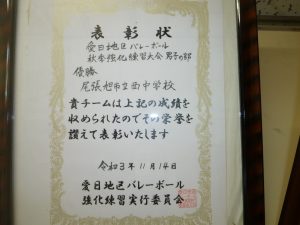 表彰状
愛日地区バレーボール
秋季強化練習大会 男子の部
優勝
尾張旭市立西中学校
貴チームは上記の成績を
収められたのでその栄誉を
讃えて表彰いたします
令和3年11月14日
愛日地区バレーボール
強化練習実行委員会